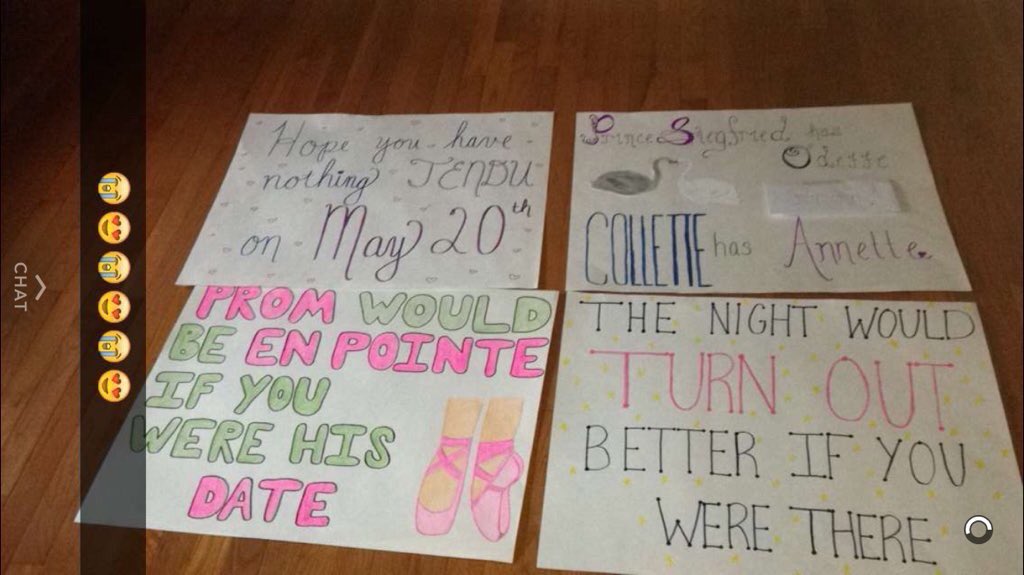 Hope you have
nothing TENDU
on May 20th
Prince Siegfried has
Odette
COLLETTE has Annette
PROM WOULD
BE EN POINTE
IF YOU
WERE HIS
DATE
THE NIGHT WOULD
TURN OUT
BETTER IF YOU
WERE THERE
😭😍😭😍😭😍
CHAT